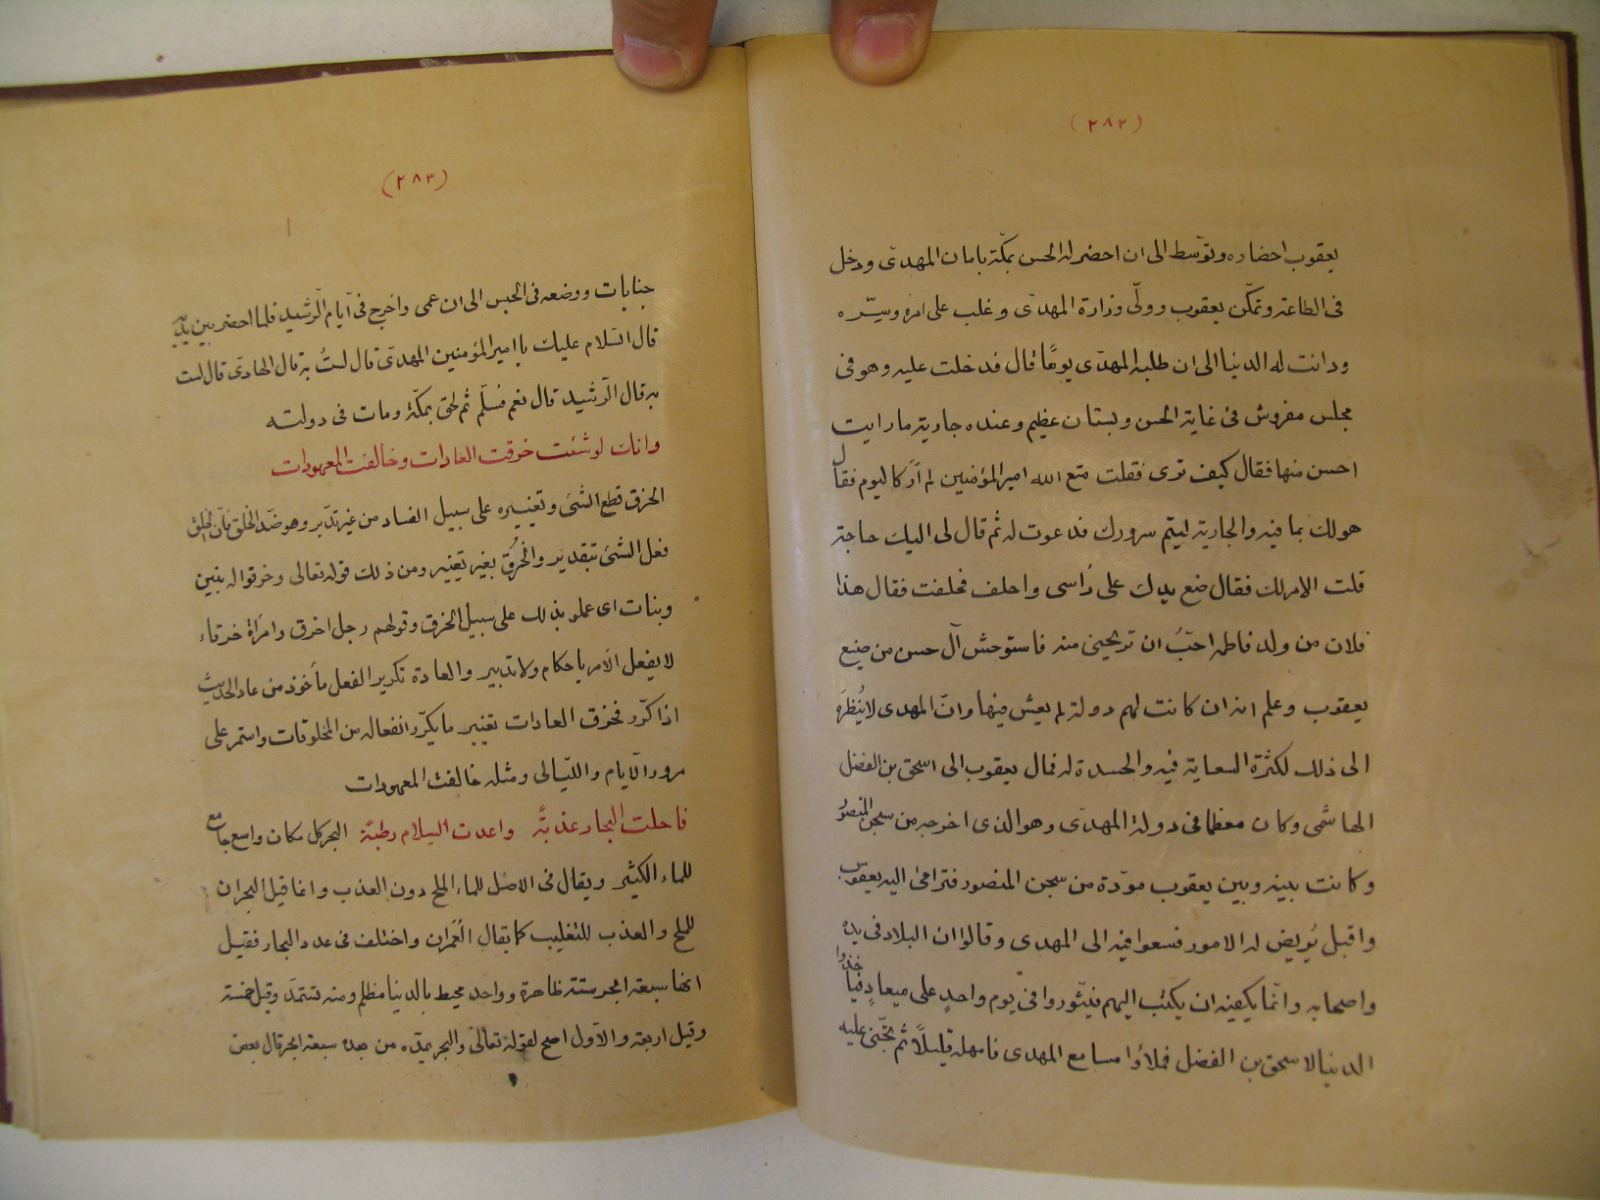 (٢٨٢)
يعقوب احضاره وتوّسط الى ان احضر له الحسن بمكّة بامان المهدى ودخل
فى الطاعة وتمكّن يعقوب وولّى وزارة المهدى وغلب على امره وسيّره
ودانت له الدنيا الى ان طلبه المهدّى يومًا قال فدخلت عليه وهو فى
مجلس مفروش فى غاية الحسن وبستان عظيم وعنده جارية ما رايت
احسن منها فقال كيف ترى فقلت متع الله امير المؤمنين لم اَرَ كاليوم فقال
هو لك بما فيه والجارية ليتم سرورك فدعوت له ثم قال لى اليك حاجة
قلت الامر لك فقال ضع يدك على رُاسى واحلف فحلفت فقال هذا
فلان من ولد فاطمه احبّ ان تريحينى منه فاستوحش آل حسن من صنيع
يعقوب وعلم انه ان كانت لهم دولة لم يعش فيها وانّ المهدى لا يُنظرَه
الى ذلك لكثرة السعاية فيه والحسدة له فمال يعقوب الى اسحق بن الفضل
الهاشمى وكان معظما فى دولة المهدّى وهو الذى اخرجه من سجن المنصور
وكانت بينه وبين يعقوب مودّة من سجن المنصور فترامى اليه يعقوب
واقبل يُريض له الامور فسعوا فيه الى المهدى وقالوا ان البلاد فى يده
واصحابه وانّما يكفيه ان يكتب اليهم فيثوروا فى يوم واحدٍ على ميعادٍ فيأخذوا
الدنيا لاسحق بن الفضل فملاؤا مسامع المهدى فامهله قليلاً ثم تجّنى عليه
(٢٨٣)
جنايات ووضعه فى الحبس الى ان عمى واخرج فى آيام الرّشيد فلما احضر بين يديه
قال السّلام عليك يا امير المؤمنين المهدّى قال لستُ به قال الهادّى قال لست
به قال الرّشيد قال نعم فسلّم ثم لحق بمكّة ومات فى دولته
وانك لو شئت خرقت العادات وخالفت المعهودات
الخرق قطع الشئ وتغييره على سبيل الفساد من غير تدّبر وهو ضّد الخلق فآن الخلق
فعل الشئ بتقدير والخرُق بغير تغيير ومن ذلك قوله تعالى وخرقوا له بنين
وبنات اى عملو بذلك على سبيل الخرق وقولهم رجل اخرق وامرَاة خرقاء
لا يفعل الآمر باحكام ولا تدبير والعادة تكرير الفعل مأخوذ من عاد الحديث
اذا كرّر فخرق العادات تغيير ما يكرّر انفعاله من المخلوقات واستمر على
مرور الآيام واللّيالى ومثله خالفت المعهودات
فاحلت البحار عذبةً واعدت السِلام رطبّة البحر كل مكان واسع جامع
للماء الكثير ويقال فى الاصل للماء الملح دون العذب وانما قيل البحران
للملح والعذب للتغليب كما يقال الُعَمران واختلف فى عدد البحار فقيل
انها سبعة ابحر ستة ظاهرة وواحد محيط بالدنيا مظلم ومنه تستمدّ وقيل خمسة
وقيل اربعة والآول اصح لقوله تعالى والبحر يمدّه من بعده سبعة ابحر قال بعض